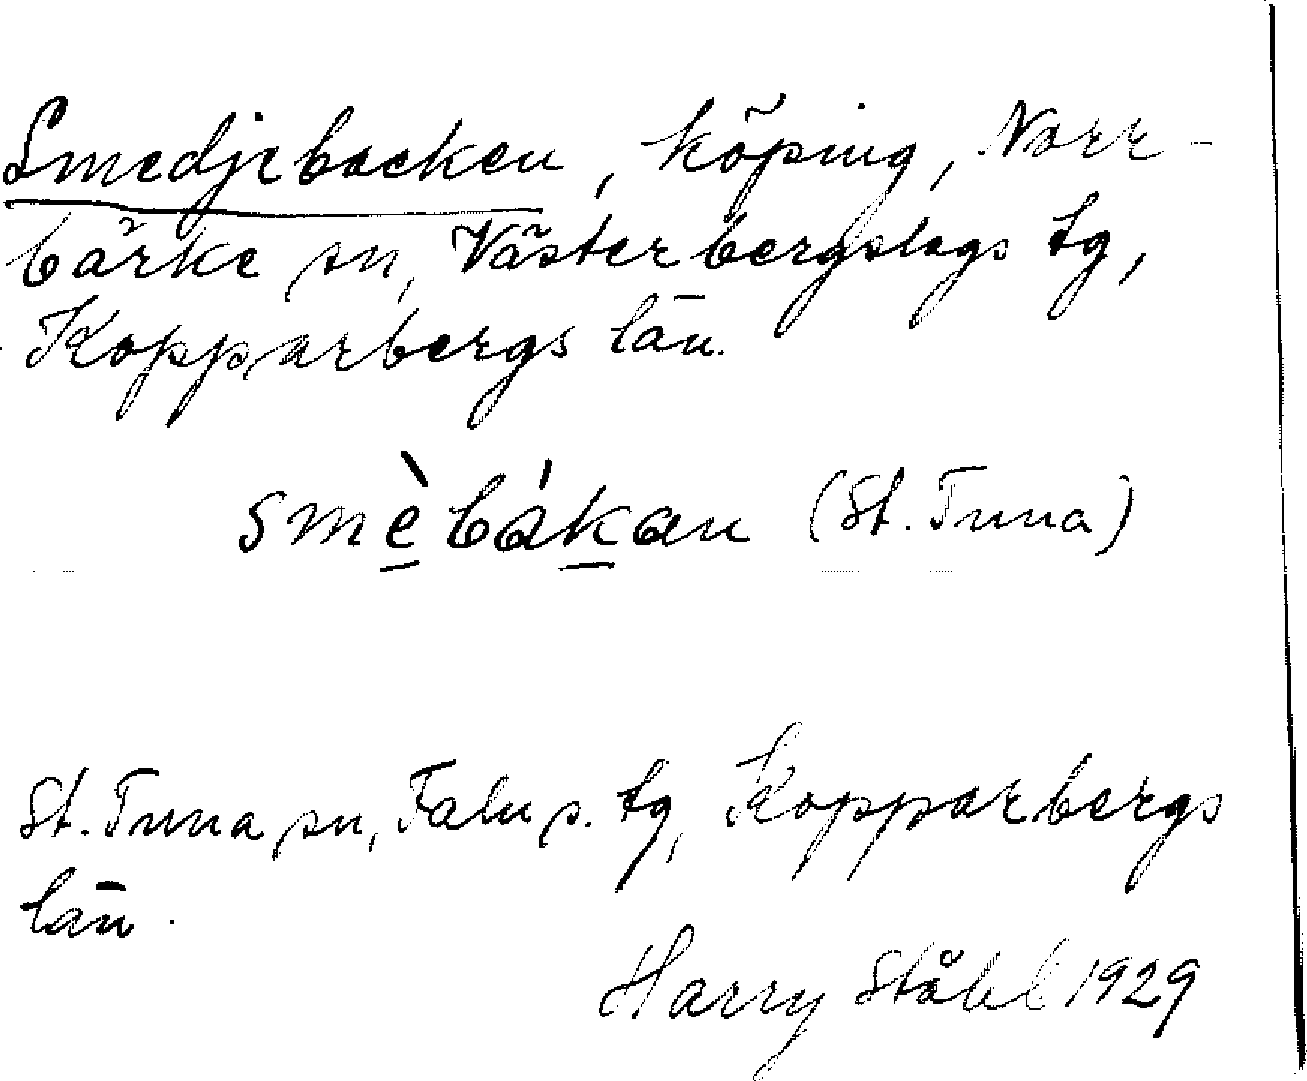 Smedjebacken, köping, Norr-
bärke sn, Västerbergslags tg,
Kopparbergs län.
smèbákan (St. Tuna)
St. Tuna sn, Falu s. tg, Kopparbergs
län.
Harry Ståhl 1929